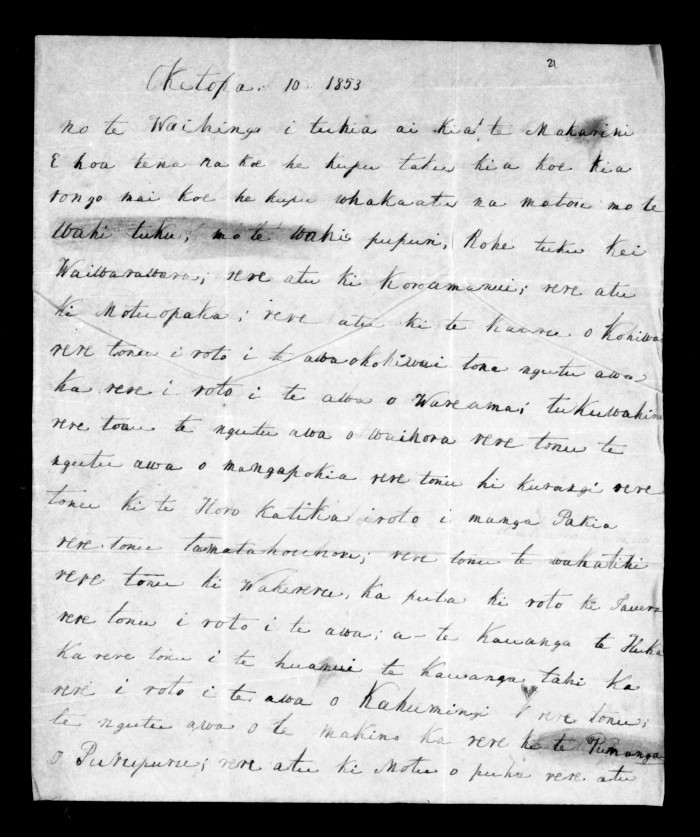 21
Oketopa. 10 1853
no te Waihinga i tukia ai kia te Makarini
E hoa tena na koe he kupu taku kia koe kia
rongo mai koe he kupu whakaatu na matou mo te
Wahi tuku; mo te wahi pupuri, Rohe tuku kei
Waiwarawara; rere atu ki Koroamanui; rere atu
ki Motuopaka; rere atu ki te kauru o Kohiwai
rere tonu i roto i te awa o kohiwai tona ngutu awa
ka rere i roto i te awa o Wareama; tukuwahine
rere tonu te ngutu awa o waihora rere tonu te
ngutu awa o mangapokia rere tonu ki kurangi rere
tonu ki te Horo katika iroto i manga Pakia
rere tonu tamatahouhou; rere tonu te wakatiki
rere tonu ki Wakereru, ka puta ki roto ki
rere tonu i roto i te awa; a- te Kawanga te Huka
Ka rere tonu i te huanui te kawanga taki ka
rere i roto i te awa o Kahumingi rere tonu;
te ngutu awa o te makino ka rere ki te Pumanga
o Purupuru; rere atu ki Motu o puha rere atu